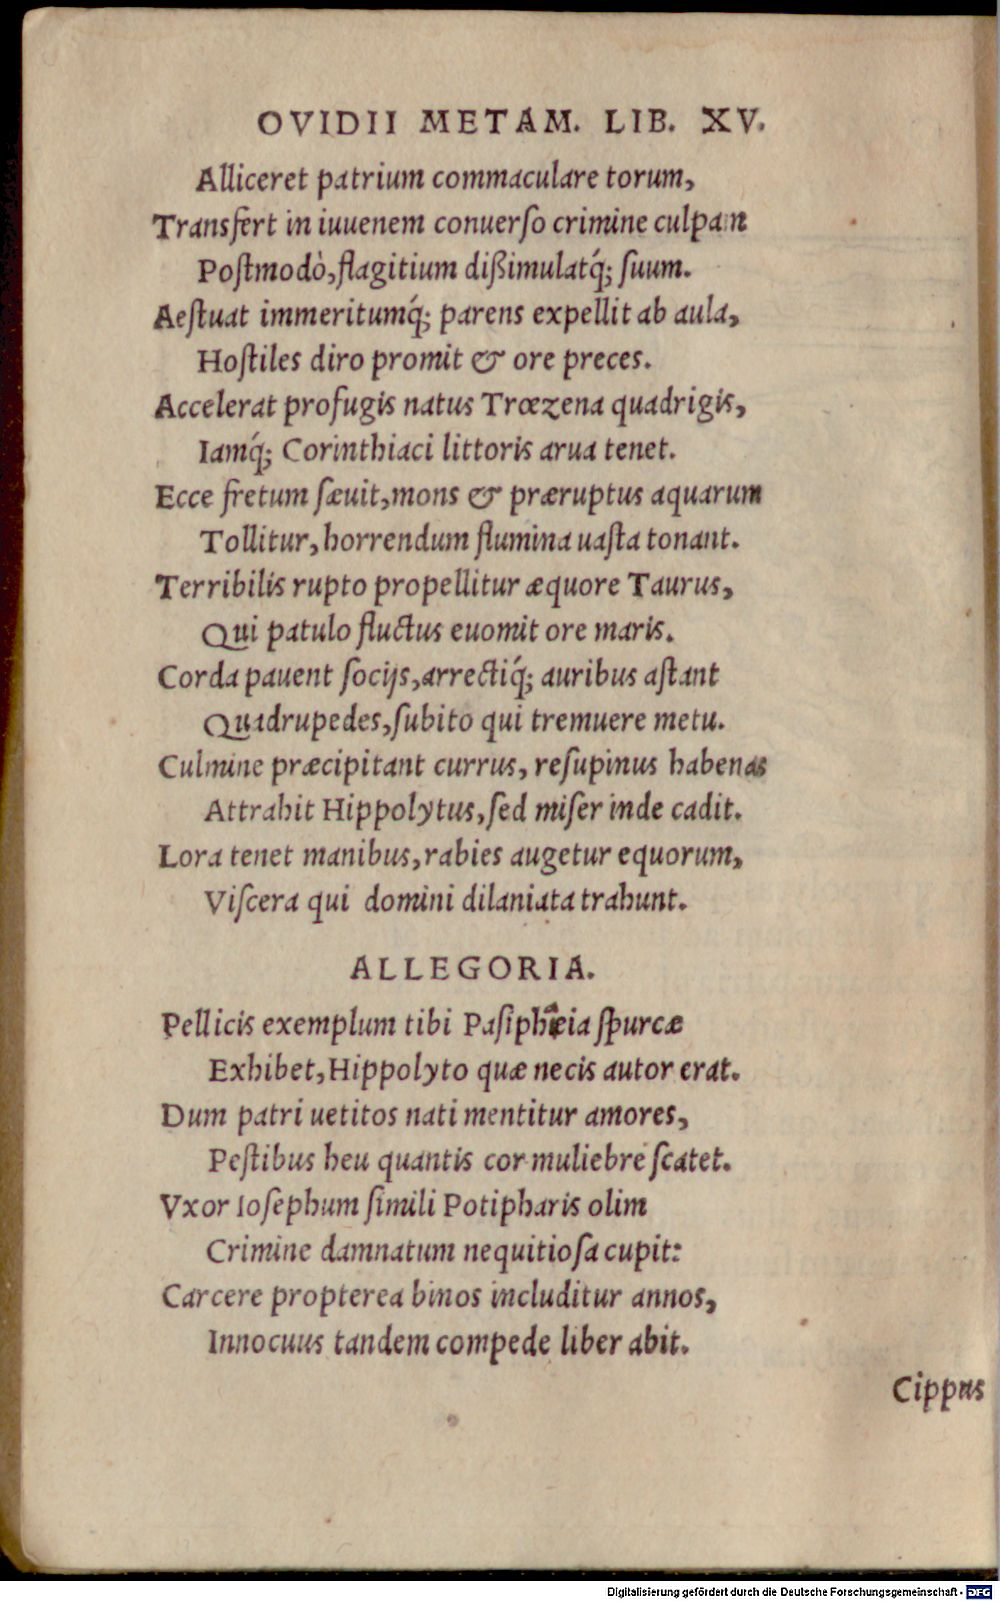 OVIDII METAM. LIB. XV.
Alliceret patrium commaculare torum,
Transfert in iuuenem conuerſo crimine culpam
Poſtmodò, flagitium dißimulatq́; ſuum.
Aeſtuat immeritumq́; parens expellit ab aula,
Hoſtiles diro promit & ore preces.
Accelerat profugis natus Trœzena quadrigis,
Iamq́; Corinthiaci littoris arua tenet.
Ecce fretum ſæuit, mons & præruptus aquarum
Tollitur, horrendum flumina uaſta tonant.
Terribilis rupto propellitur æquore Taurus,
Qui patulo fluctus euomit ore maris.
Corda pauent socijs, arrectiq́; auribus aſtant
Quadrupedes, ſubito qui tremuere metu.
Culmine præcipitant currus, reſupinus habenas
Attrahit Hippolytus, ſed miſer inde cadit.
Lora tenet manibus, rabies augetur equorum,
Viſcera qui domini dilaniata trahunt.
ALLEGORIA.
Pellicis exemplum tibi Paſiphæia ſpurcæ
Exhibet, Hippolyto quæ necis autor erat.
Dum patri uetitos nati mentitur amores,
Peſtibus heu quantis cor muliebre ſcatet.
Vxor Ioſephum ſimili Potipharis olim
Crimine damnatum nequitioſa cupit:
Carcere propterea binos includitur annos,
Innocuus tandem compede liber abit.
Cippus
Digitalisierung gefördert durch die Deutsche Forschungsgemeinschaft - DFG